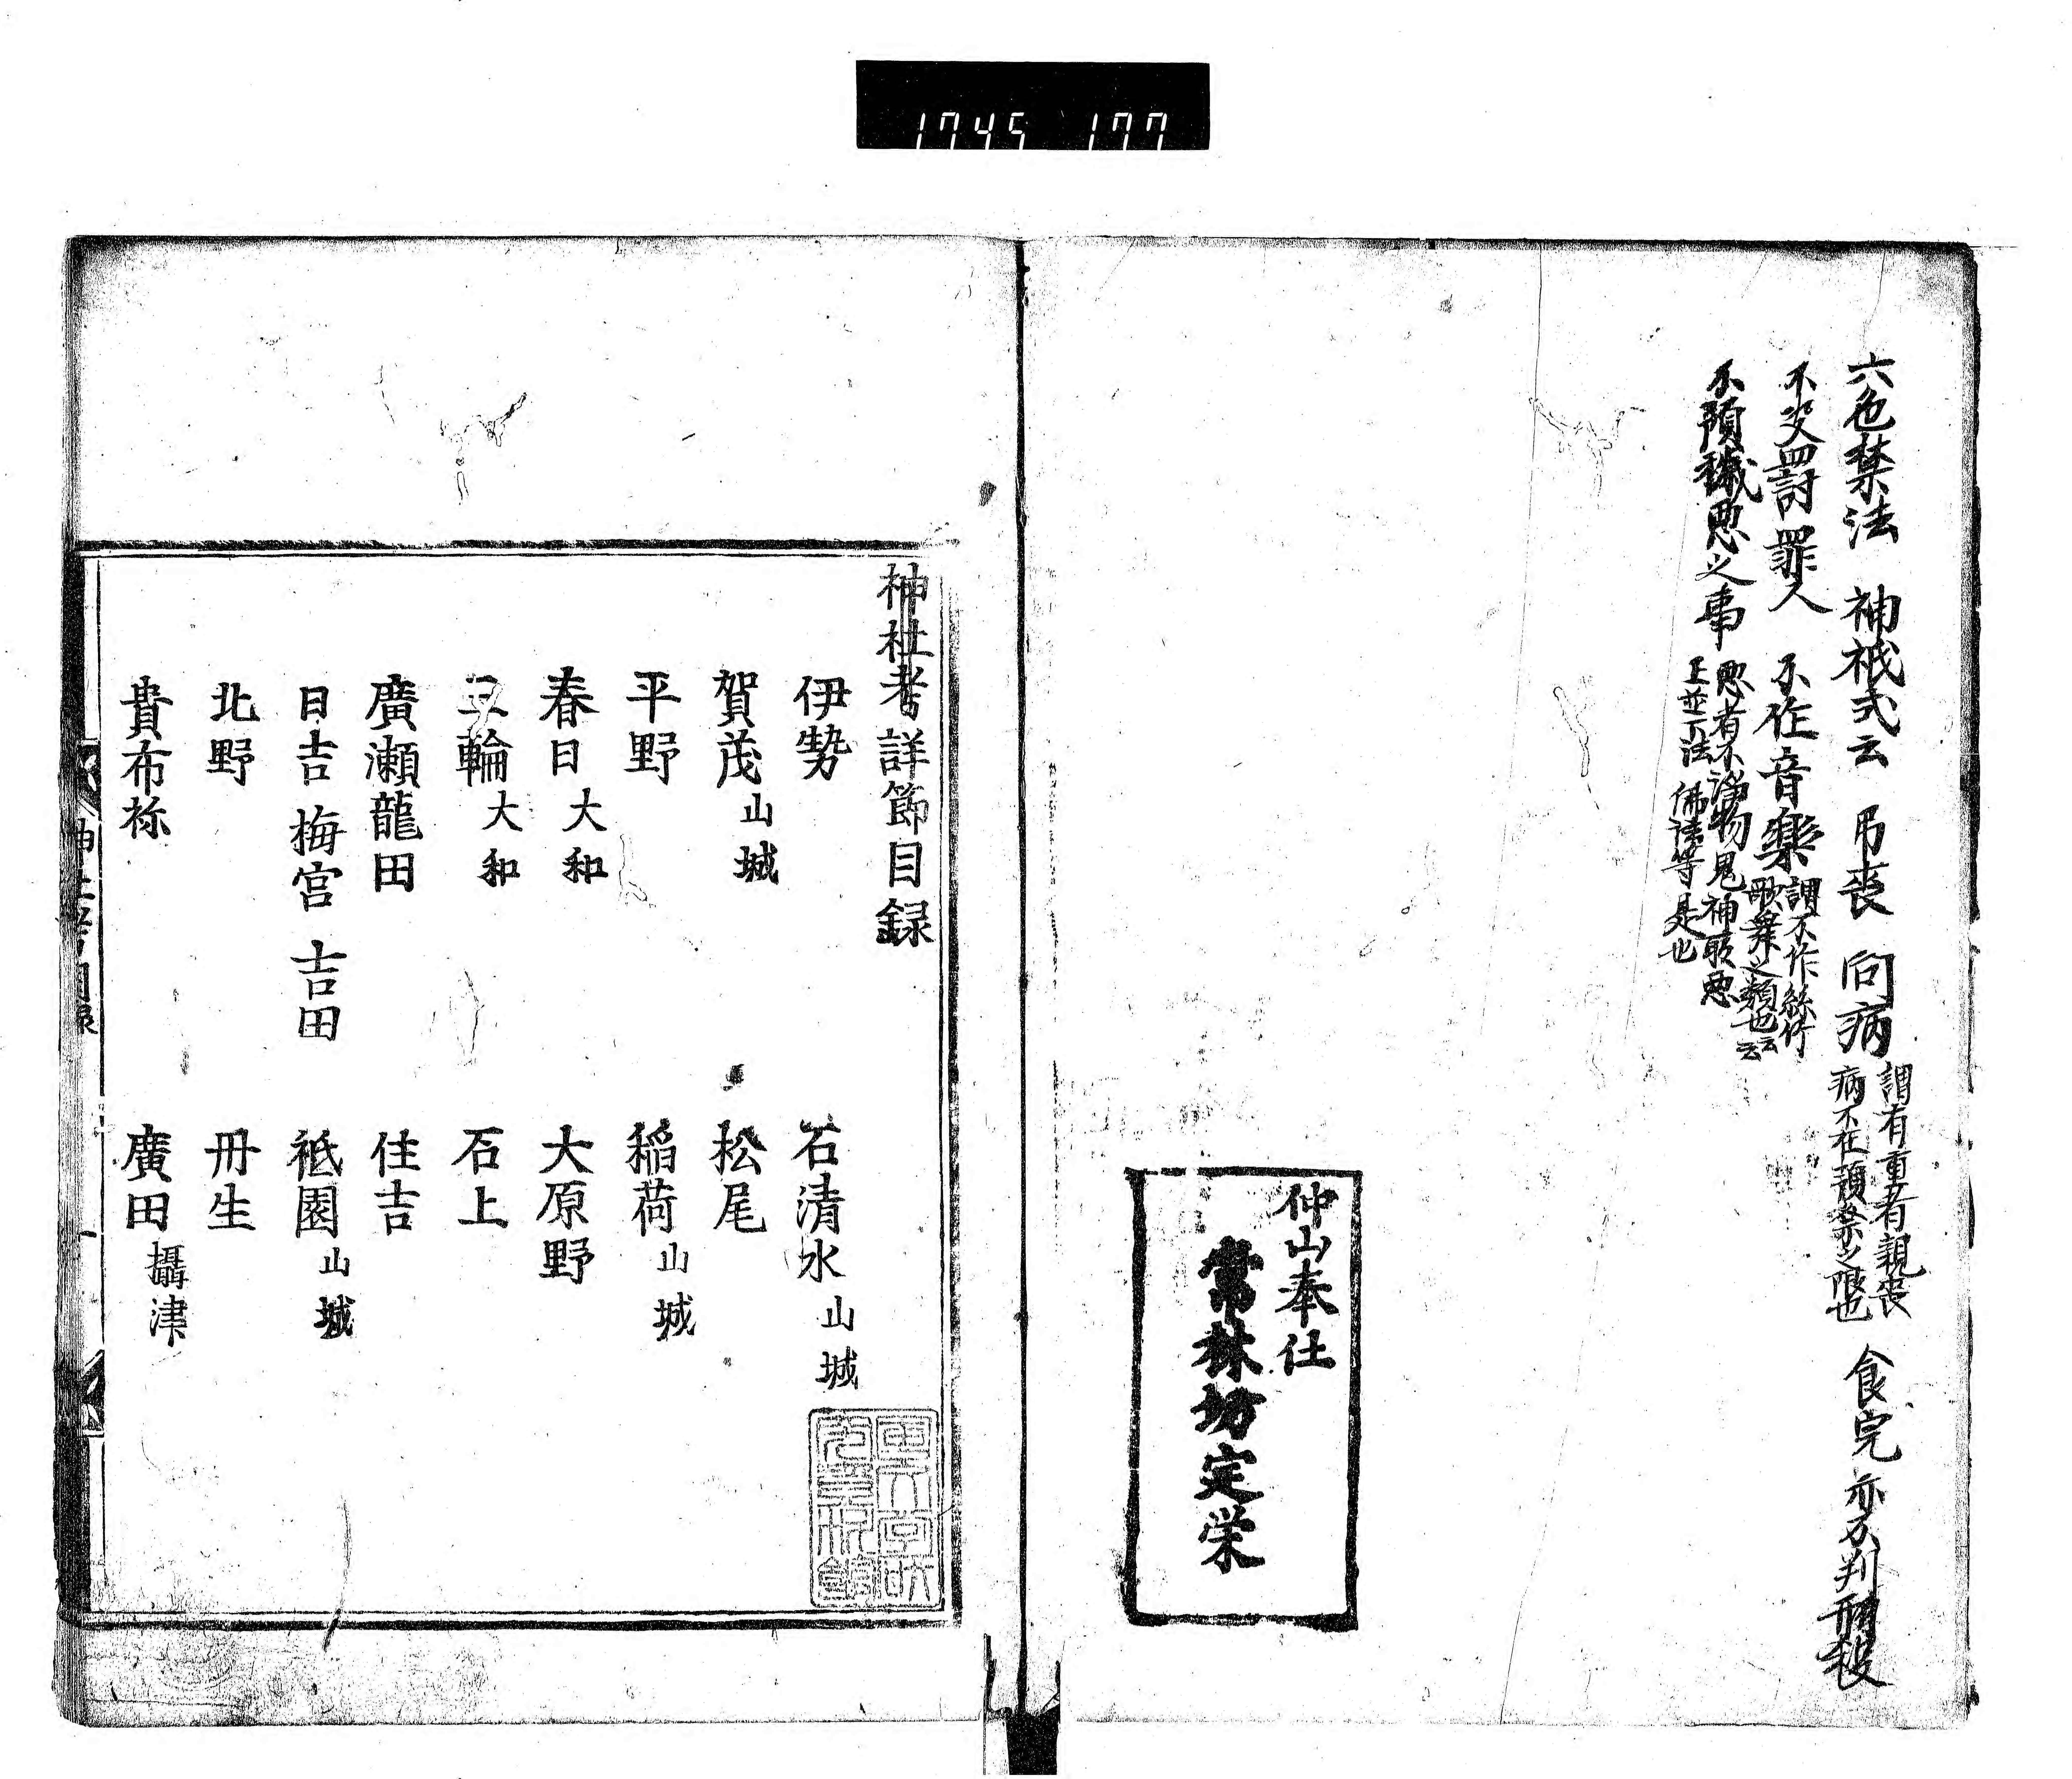 1745 177
六色禁法 神祇式云 吊喪 問病 謂有重者親喪病不在預祭之限也 食完 亦不判刑殺
不决罸罪人 不作音樂 謂不作絲竹歌舞之類也云云
不預穢悪之事 悪者不浄物鬼神所悪
佛法等是也
仲山奉仕
常林坊定栄
神社考詳節目録
伊勢 石清水 山城
賀茂 山城 松尾
平野 稲荷 山城
春日 大和 大原野
三輪 大和 石上
廣瀬龍田 住吉
日吉 梅宮 吉田 祇園 山城
北野 丹生
貴布祢 廣田 攝津
神社考目録 一